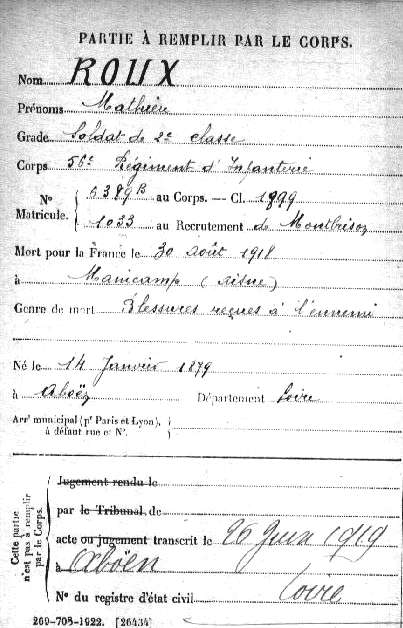 PARTIE À REMPLIR PAR LE CORPS.
Nom ROUX
Prénoms Mathieu
Grade Soldat de 2e classe
Corps 56e Régiment d'Infanterie
No Matricule. { 6389B au Corps. — Cl. 1899
1033 au Recrutement de Montbrison
Mort pour la France le 30 août 1918
à Manicamp (Aisne)
Genre de mort Blessures reçues à l'ennemi
Né le 14 Janvier 1879
à Aboën Département Loire
Arrt municipal (pr Paris et Lyon), à défaut rue et No.
Cette partie n'est pas à remplir par le Corps.
Jugement rendu le
par le Tribunal de
acte ou jugement transcrit le 26 Juin 1919
à Aböen
Loire
No du registre d'état civil
269-708-1922. [26434]